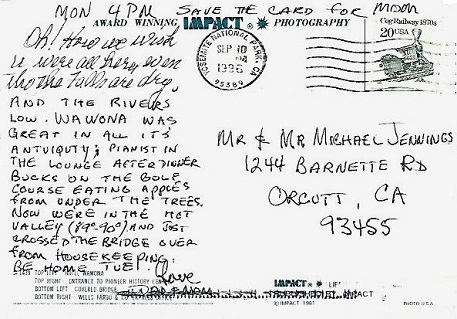 MON 4 PM SAVE THE CARD FOR MOM
AWARD WINNING IMPACT PHOTOGRAPHY
Oh! How we wish
u were all here, even
tho the Falls are dry,
AND THE RIVERS
LOW. WAWONA WAS
GREAT IN ALL ITS
ANTUIQUTY; PIANIST IN
THE LOUNGE AFTER DINNER
BUCKS ON THE GOLF
COURSE EATING APPLES
FROM UNDER THE TREES.
NOW WERE IN THE HOT
VALLEY (89°-90°) AND JUST
CROSSED THE BRIDGE OVER
FROM HOUSEKEEPING.
BE HOME TUE!
Love
TOP LEFT HOTEL WAWONA
TOP RIGHT ENTRANCE TO PIONEER HISTORY CENTER
BOTTOM LEFT COVERED BRIDGE
BOTTOM RIGHT WELLS FARGO & CO
YOSEMITE NATIONAL PARK, CA
SEP 10
PM
1996
95389
Cog Railway 1870s
20 USA
MR & MR MICHAEL JENNINGS
1244 BARNETTE RD
ORCUTT, CA
93455
IMPACT
© IMPACT 1981
PHOTO USA